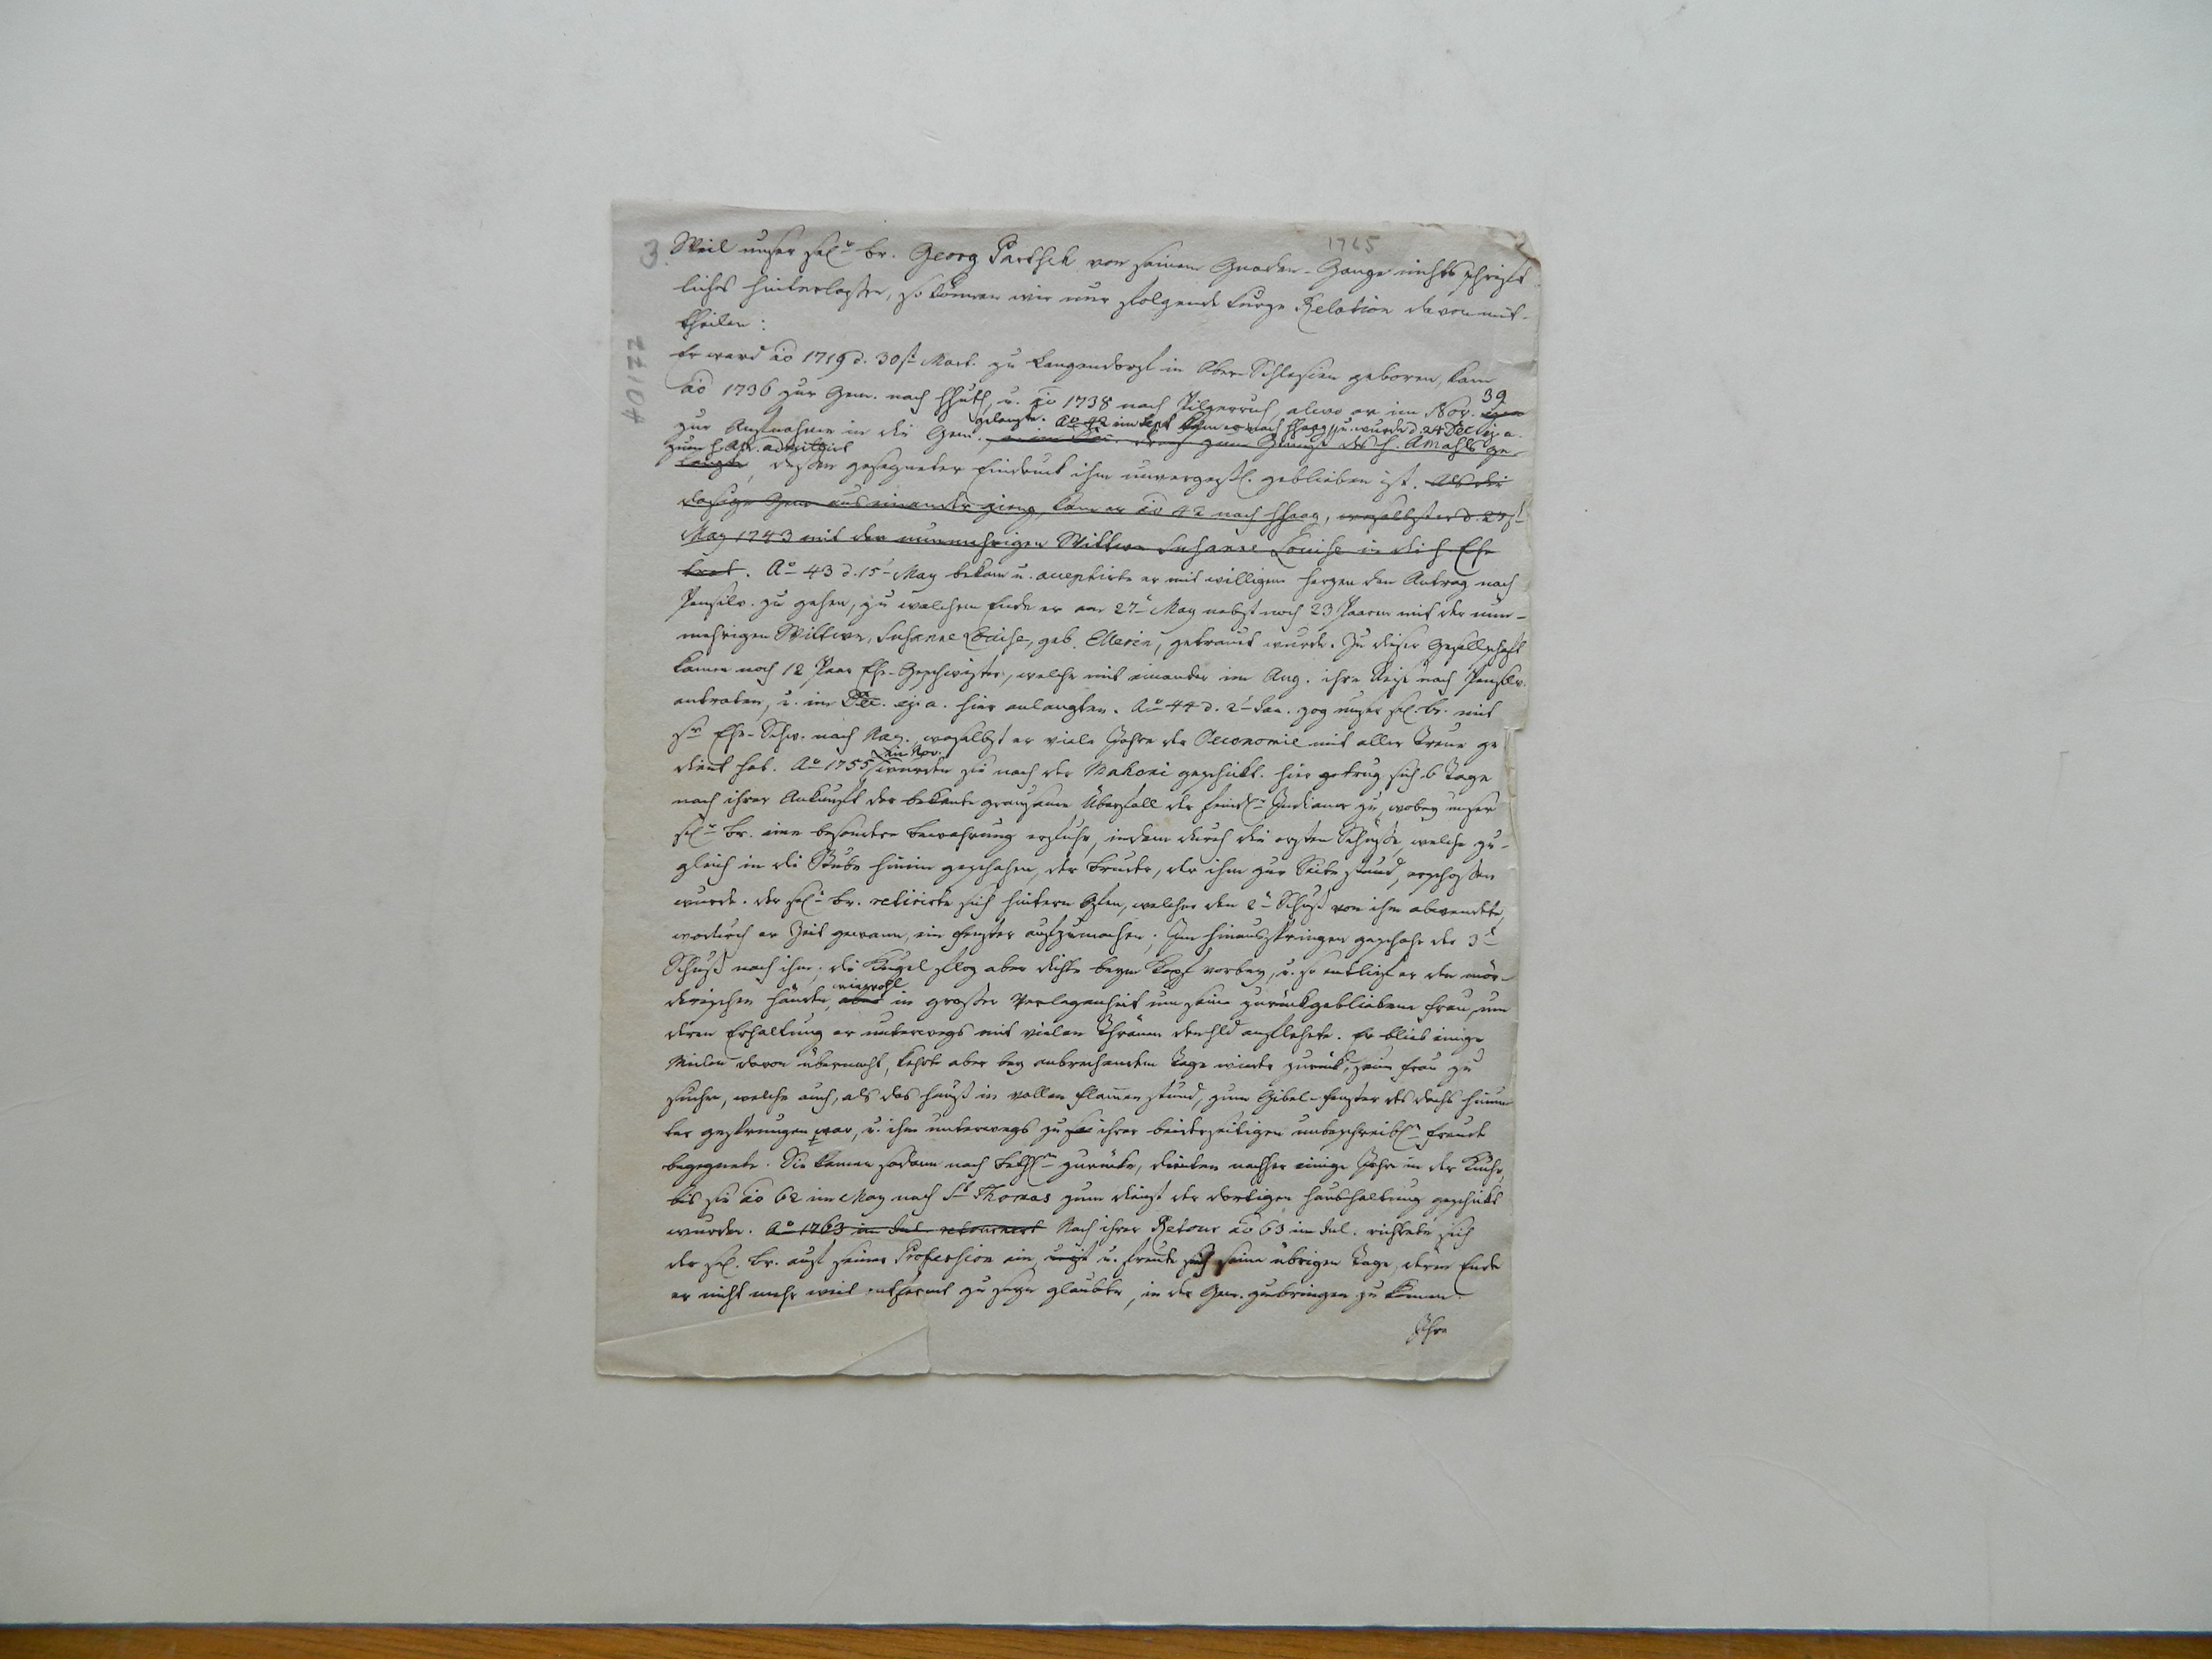 1765
3.
40177
Weil unser sel.r Br. Georg Partsch von seinem Gnaden-Gange nichts schrift-
liches hinterlaßen, so können wir nur folgende kurze Relation davon mit-
theilen:
Er ward ao 1719 d. 30st Mart. zu Langendorf in Ober-Schlesien geboren, kam
ao 1736 zur Gem. nach HHuth, u. ao 1738 nach Pilgerruh, alwo er im Nov. 39
zur Aufnahme in die Gem. gelangte. Ao 42 im Sept kam er nach HHaag, u. wurde d. 24 Dec ej. a.
zum H. Abdm. admittirt
des H. Amahls ge-
langte, deßen gesegneter Eindruck ihm unvergeßl. geblieben ist. Als die
dasige Gem auseinander gieng, kam er ao 42 nach HHaag, woselbst er d. 27st
May 1743 mit der nunmehrigen Wittwe Susanne Louise in die h. Ehe
trat. Ao 43 d. 15t May bekam u. acceptirte er mit willigem Herzen den Antrag nach
Pensilv. zu gehen, zu welchem Ende er am 27t May nebst noch 23 Paaren mit der nun-
mehrigen Wittwe, Susanne Louise, geb. Ellerin, getraut wurde. Zu dieser Gesellschaft
kamen noch 12 Paar Ehe-Geschwister, welche mit einander im Aug. ihre Reise nach Pensilv.
antraten, u. im Dec. ej. a. hier anlangten. Ao 44 d. 2t Jan. zog unser sel. Br. mit
sr Ehe-Schw. nach Naz., woselbst er viele Jahre der Oeconomie mit aller Treue ge
dient hat. Ao 1755 im Nov. wurden sie nach der Mahoni geschickt. Hier getrug sich 6 Tage
nach ihrer Ankunft der bekante grausame Überfall der feindl. Indianer zu, wobey unser
sel.r Br. eine besondere Bewahrung erfuhr, indem durch die ersten Schüße, welche zu-
gleich in die Stube hinein geschahen, der Bruder, der ihm zur Seite stund, erschoßen
wurde. Der sel. Br. retirirte sich hintern Ofen, welcher den 2n Schuß von ihm abwendete,
wodurch er Zeit gewann, ein Fenster aufzumachen. Im Hinausspringen geschahe der 3t
Schuß nach ihm; die Kugel flog aber dichte beym Kopf vorbey, u. so entlief er den mör-
derischen Händen, aber wiewohl in großer Verlegenheit um seine zurückgebliebene Frau, um
deren Erhaltung er unterwegs mit vielen Thränen den Hld anflehete. Er blieb einige
Meilen davon übernacht, kehrte aber bey anbrechendem Tage wieder zurück, seine Frau zu
suchen, welche auch, als das Hauß in vollen Flamen stund, zum Gibel-Fenster des Dachs hinun
ter gesprungen war, u. ihm unterwegs zu ihrer beiderseitigen unbeschreibl.n Freude
begegnete. Sie kamen sodann nach Bethl.m zurücke, dienten nachher einige Jahre in der Küche,
bis sie ao 62 im May nach St Thomas zum Dienst der dortigen Haushaltung geschickt
wurden. Ao 1763 im Jul. retournert Nach ihrer Retour ao 63 im Jul. richtete sich
der sel. Br. auf seiner Profession ein, u. freute sich seine übrigen Tage, deren Ende
er nicht mehr weit entfernt zu seyn glaubte, in der Gem. zubringen zu können.
Ihre